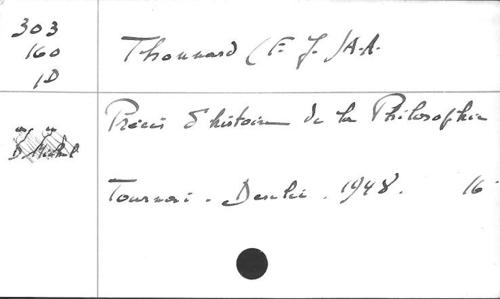 303
160
1D
Thonnard (F. J.) A.A.
Précis d'histoire de la Philosophie
Tournai - Desclée. 1948. 16°